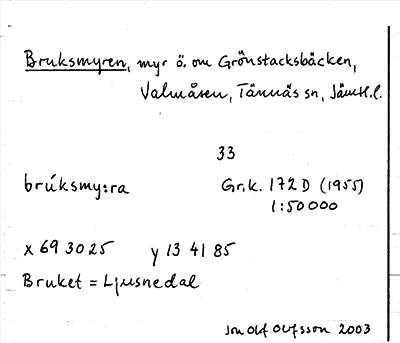 Bruksmyren, myr ö. om Grönstacksbäcken,
Valmåsen, Tännäs sn, Jämtl. l.
33
brúksmy:ra Gr.k. 172 D (1955)
1:50 000
x 69 30 25 y 13 41 85
Bruket = Ljusnedal
Jon Olof Olofsson 2003